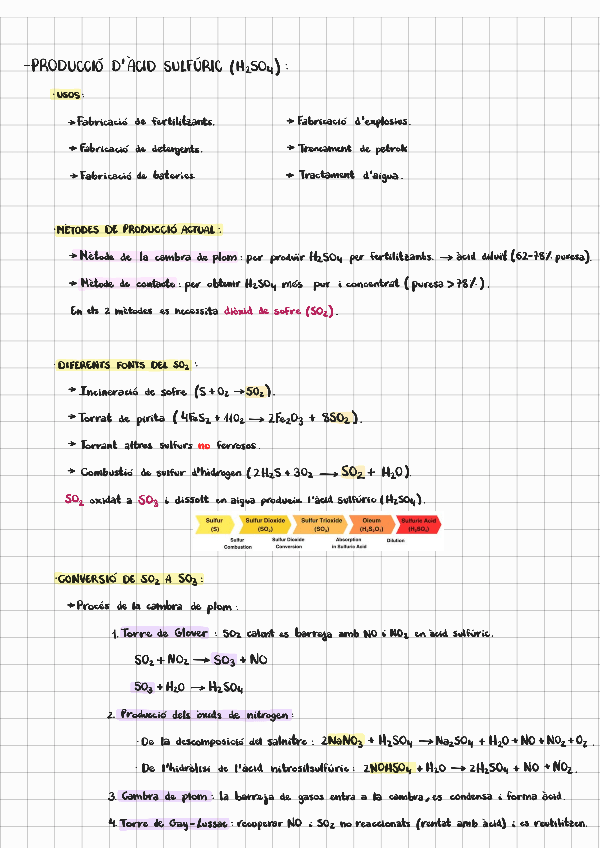 -PRODUCCIÓ D'ÀCID SULFÚRIC (H₂SO₄):
·USOS:
→Fabricació de fertilitzants.
→Fabricació d'explosius.
→Fabricació de detergents.
→Trencament de petroli
→Fabricació de bateries
→Tractament d'aigua.
·MÈTODES DE PRODUCCIÓ ACTUAL:
→Mètode de la cambra de plom: per produir H₂SO₄ per fertilitzants. → àcid diluït (62-78% puresa).
→Mètode de contacte: per obtenir H₂SO₄ més pur i concentrat (puresa >78%).
En els 2 mètodes es necessita diòxid de sofre (SO₂).
·DIFERENTS FONTS DEL SO₂:
→Incineració de sofre (S + O₂ → SO₂).
→Torrat de pirita (4FeS₂ + 11O₂ → 2Fe₂O₃ + 8SO₂).
→Torrant altres sulfurs no ferrosos.
→Combustió de sulfur d'hidrogen (2H₂S + 3O₂ → SO₂ + H₂O)
SO₂ oxidat a SO₃ i dissolt en aigua produeix l'àcid sulfúric (H₂SO₄).
Sulfur (S) Sulfur Dioxide (SO₂) Sulfur Trioxide (SO₃) Oleum (H₂S₂O₇) Sulfuric Acid (H₂SO₄)
Sulfur Combustion Sulfur Dioxide Conversion Absorption in Sulfuric Acid Dilution
·CONVERSIÓ DE SO₂ A SO₃:
→Procés de la cambra de plom:
1. Torre de Glover: SO₂ calent es barreja amb NO i NO₂ en àcid sulfúric.
SO₂ + NO₂ → SO₃ + NO
SO₃ + H₂O → H₂SO₄
2. Producció dels òxids de nitrogen:
·De la descomposició del salnitre: 2NaNO₃ + H₂SO₄ → Na₂SO₄ + H₂O + NO + NO₂ + O₂.
·De l'hidròlisi de l'àcid nitrosilsulfúric: 2NOHSO₄ + H₂O → 2H₂SO₄ + NO + NO₂.
3. Cambra de plom: la barreja de gasos entra a la cambra, es condensa i forma àcid.
4. Torre de Gay-Lussac: recuperar NO i SO₂ no reaccionats (rentat amb àcid) i es reutilitzen.